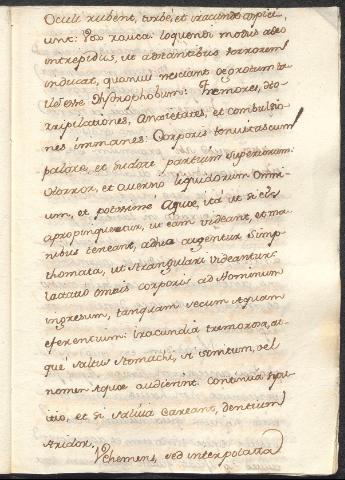 Oculi rubent, turbe, et iracunde aspici-
unt: Vox rauca: loquendi modus adeo
intrepidus, ut adstantibus terrorem
inducat, quamvis nesciant ægrotum ta-
lem esse Hydrophobum: Tremores, ho-
rripilationes, Anxietates, et combulsio-
nes immanes: Corporis
palore, et sudore partium superiorum:
Horror, et aversio liquidorum omni-
um, et potissimè Aquæ, ità ut si eis
apropinquetur, ut eam videant, et ma-
nibus teneant, adeo augentur simp-
thomata, ut strangulari videantur:
Iactatio omnis corporis ad Hominum
ingresum, tanquam secum Aquam
eferentium: iracundia tremorosa, at-
què saltus stomachi, si sonitum, vel
nomen Aquæ audierint. Continua spu-
itio, et si saliva careant, dentium
stridor.
Vehemens, sed interpolata